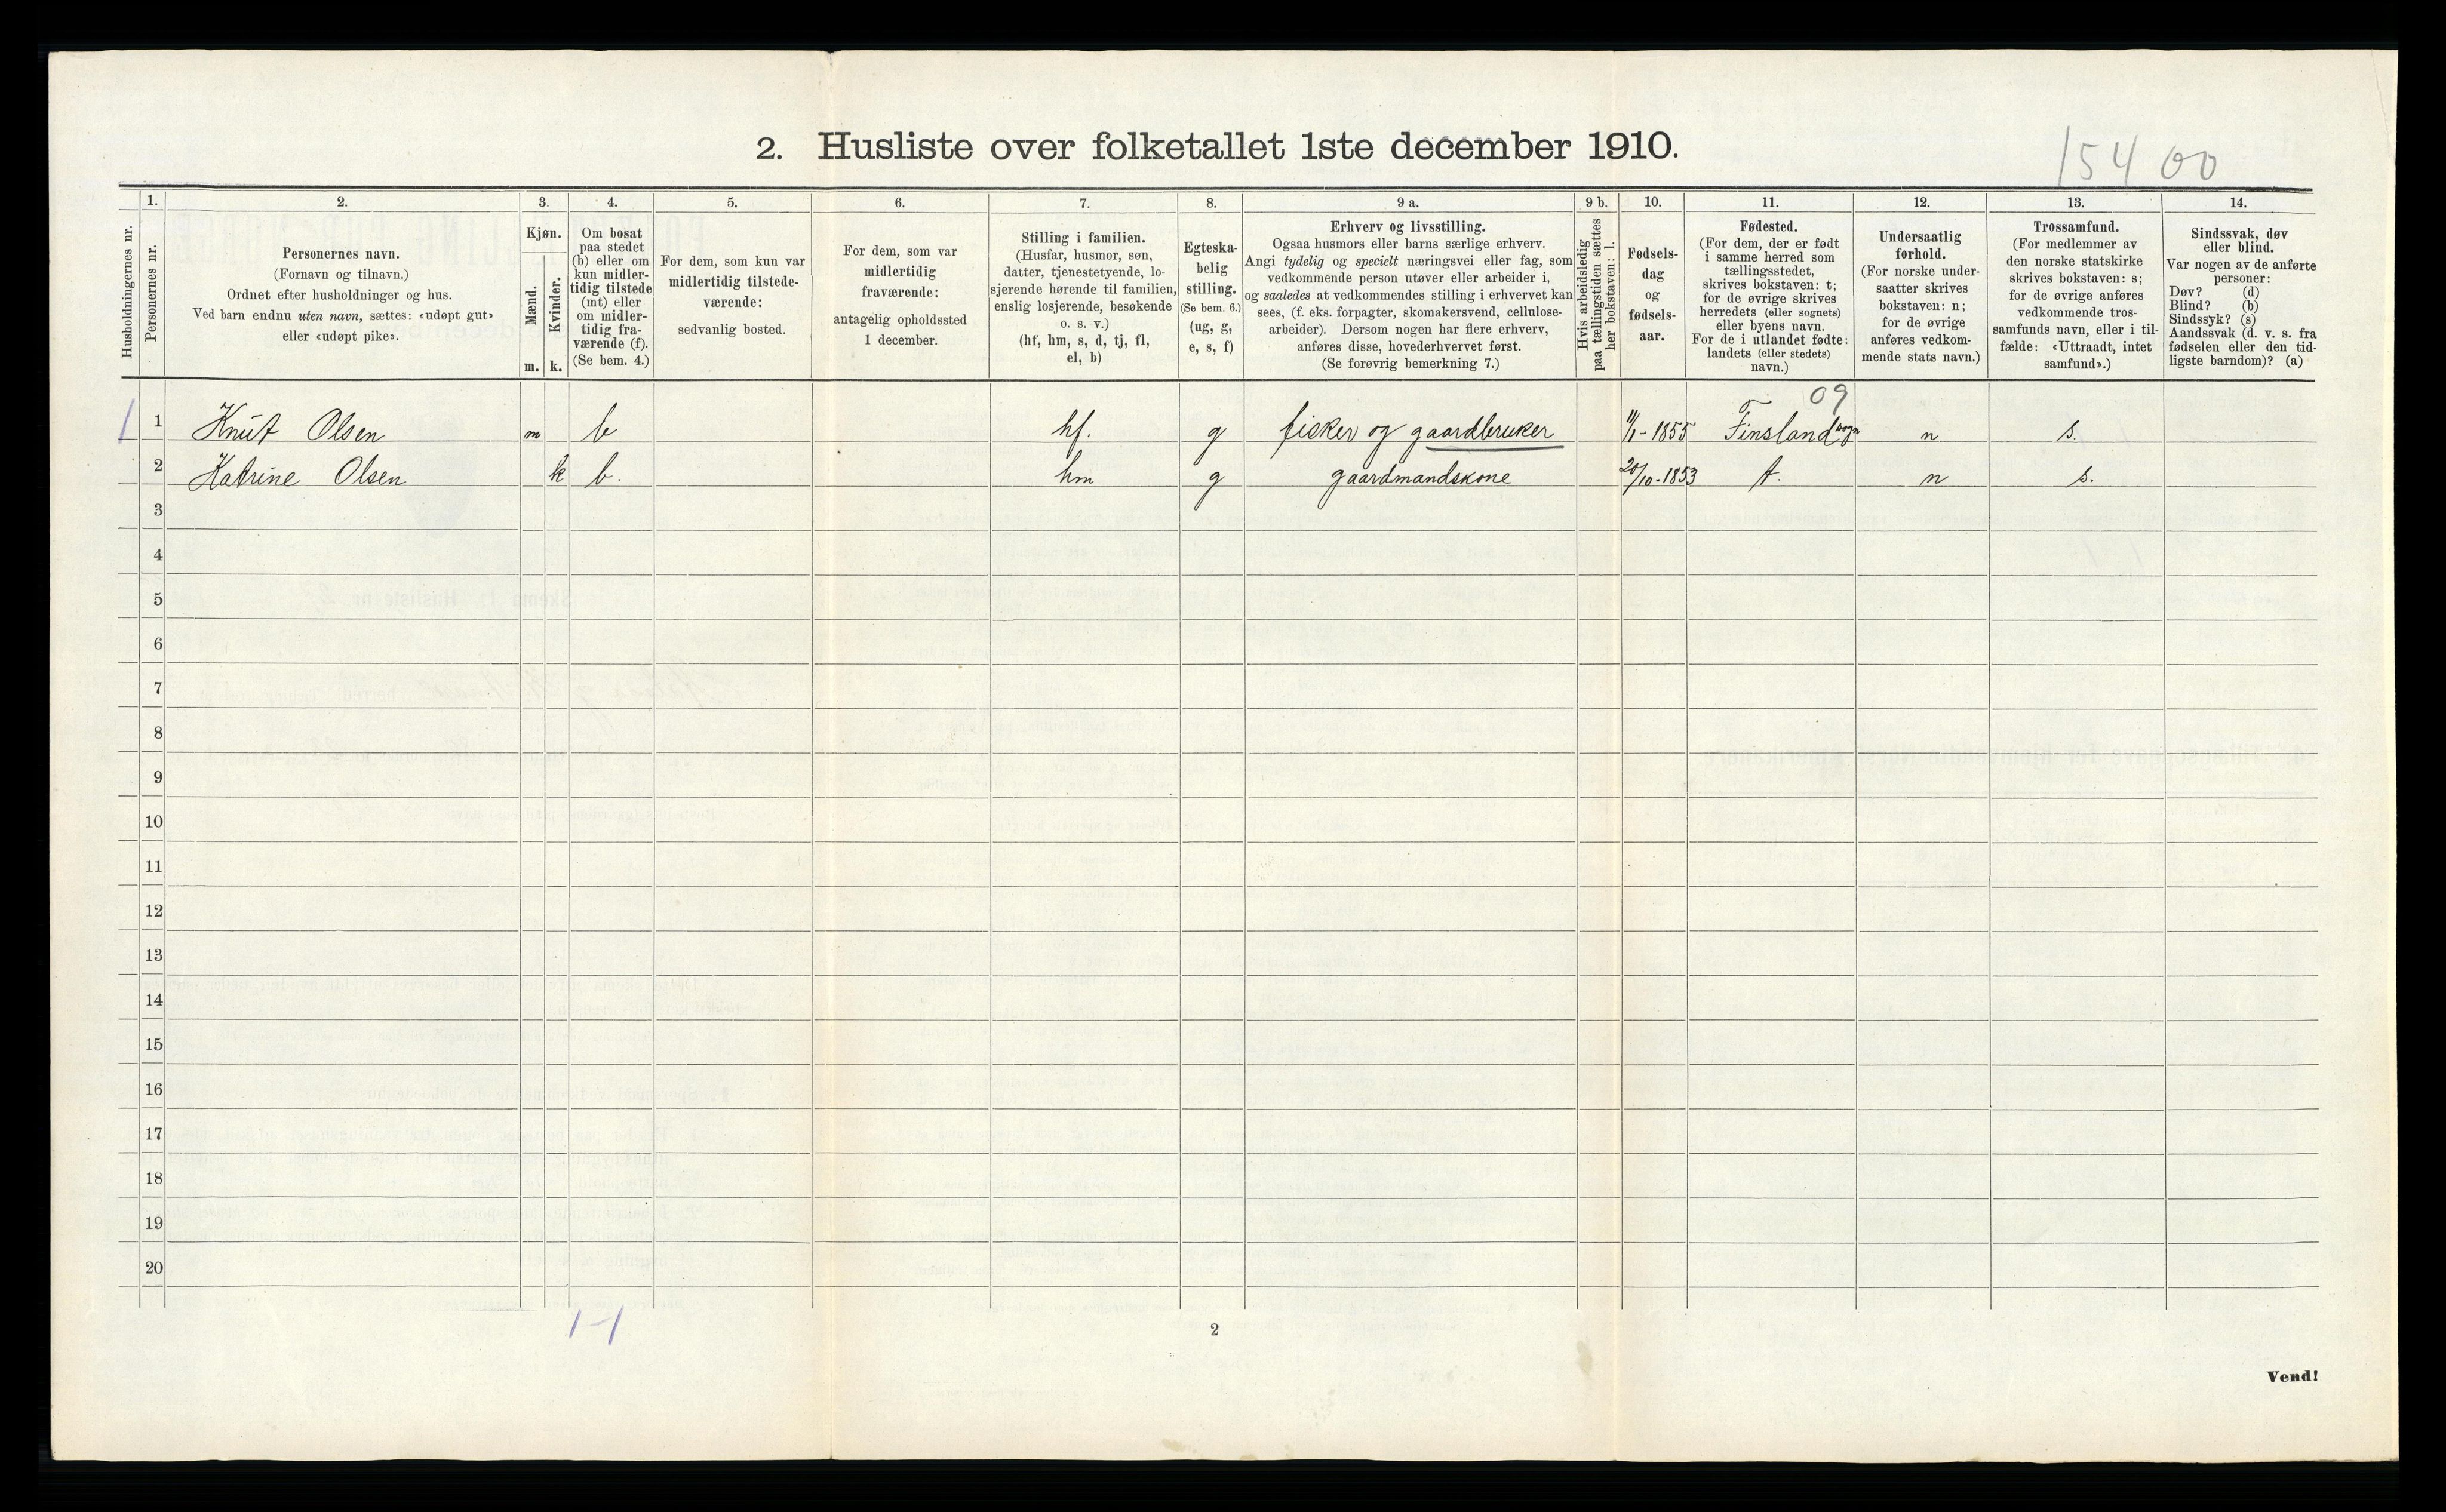 2. Husliste over folketallet 1ste december 1910.
15400
Husholdningernes nr.
1.
Personernes nr.
2.
Personernes navn.
(Fornavn og tilnavn.)
Ordnet efter husholdninger og hus.
Ved barn endnu uten navn, sættes: «udøpt gut»
eller «udøpt pike».
3.
Kjøn.
Mænd.
Kvinder.
m.
k.
4.
Om bosat
paa stedet
(b) eller om
kun midler-
tidig tilstede
(mt) eller
om midler-
tidig fra-
værende (f).
(Se bem. 4.)
5.
For dem, som kun var
midlertidig tilstede-
værende:
sedvanlig bosted.
6.
For dem, som var
midlertidig
fraværende:
antagelig opholdssted
1 december.
7.
Stilling i familien.
(Husfar, husmor, søn,
datter, tjenestetyende, lo-
sjerende hørende til familien,
enslig losjerende, besøkende
o. s. v.)
(hf, hm, s, d, tj, fl,
el, b)
8.
Egteska-
belig
stilling.
(Se bem. 6.)
(ug, g,
e, s, f)
9 a.
Erhverv og livsstilling.
Ogsaa husmors eller barns særlige erhverv.
Angi tydelig og specielt næringsvei eller fag, som
vedkommende person utøver eller arbeider i,
og saaledes at vedkommendes stilling i erhvervet kan
sees, (f. eks. forpagter, skomakersvend, cellulose-
arbeider). Dersom nogen har flere erhverv,
anføres disse, hovederhvervet først.
(Se forøvrig bemerkning 7.)
9 b.
Hvis arbeidsledig
paa tællingstiden sættes
her bokstaven: l.
10.
Fødsels-
dag
og
fødsels-
aar.
11.
Fødested.
(For dem, der er født
i samme herred som
tællingsstedet,
skrives bokstaven: t;
for de øvrige skrives
herredets (eller sognets)
eller byens navn.
For de i utlandet fødte:
landets (eller stedets)
navn.)
12.
Undersaatlig
forhold.
(For norske under-
saatter skrives
bokstaven: n;
for de øvrige
anføres vedkom-
mende stats navn.)
13.
Trossamfund.
(For medlemmer av
den norske statskirke
skrives bokstaven: s;
for de øvrige anføres
vedkommende tros-
samfunds navn, eller i til-
fælde: «Uttraadt, intet
samfund».)
14.
Sindssvak, døv
eller blind.
Var nogen av de anførte
personer:
Døv? (d)
Blind? (b)
Sindssyk? (s)
Aandssvak (d. v. s. fra
fødselen eller den tid-
ligste barndom)? (a)
09
1 1 Knut Olsen m b hf. g fisker og gaardbruker 11/1-1855 Finsland sogn n s.
2 Katrine Olsen k b. hm g gaardmandskone 20/10-1853 t. n s.
3
4
5
6
7
8
9
10
11
12
13
14
15
16
17
18
19
20
1-1
2
Vend!